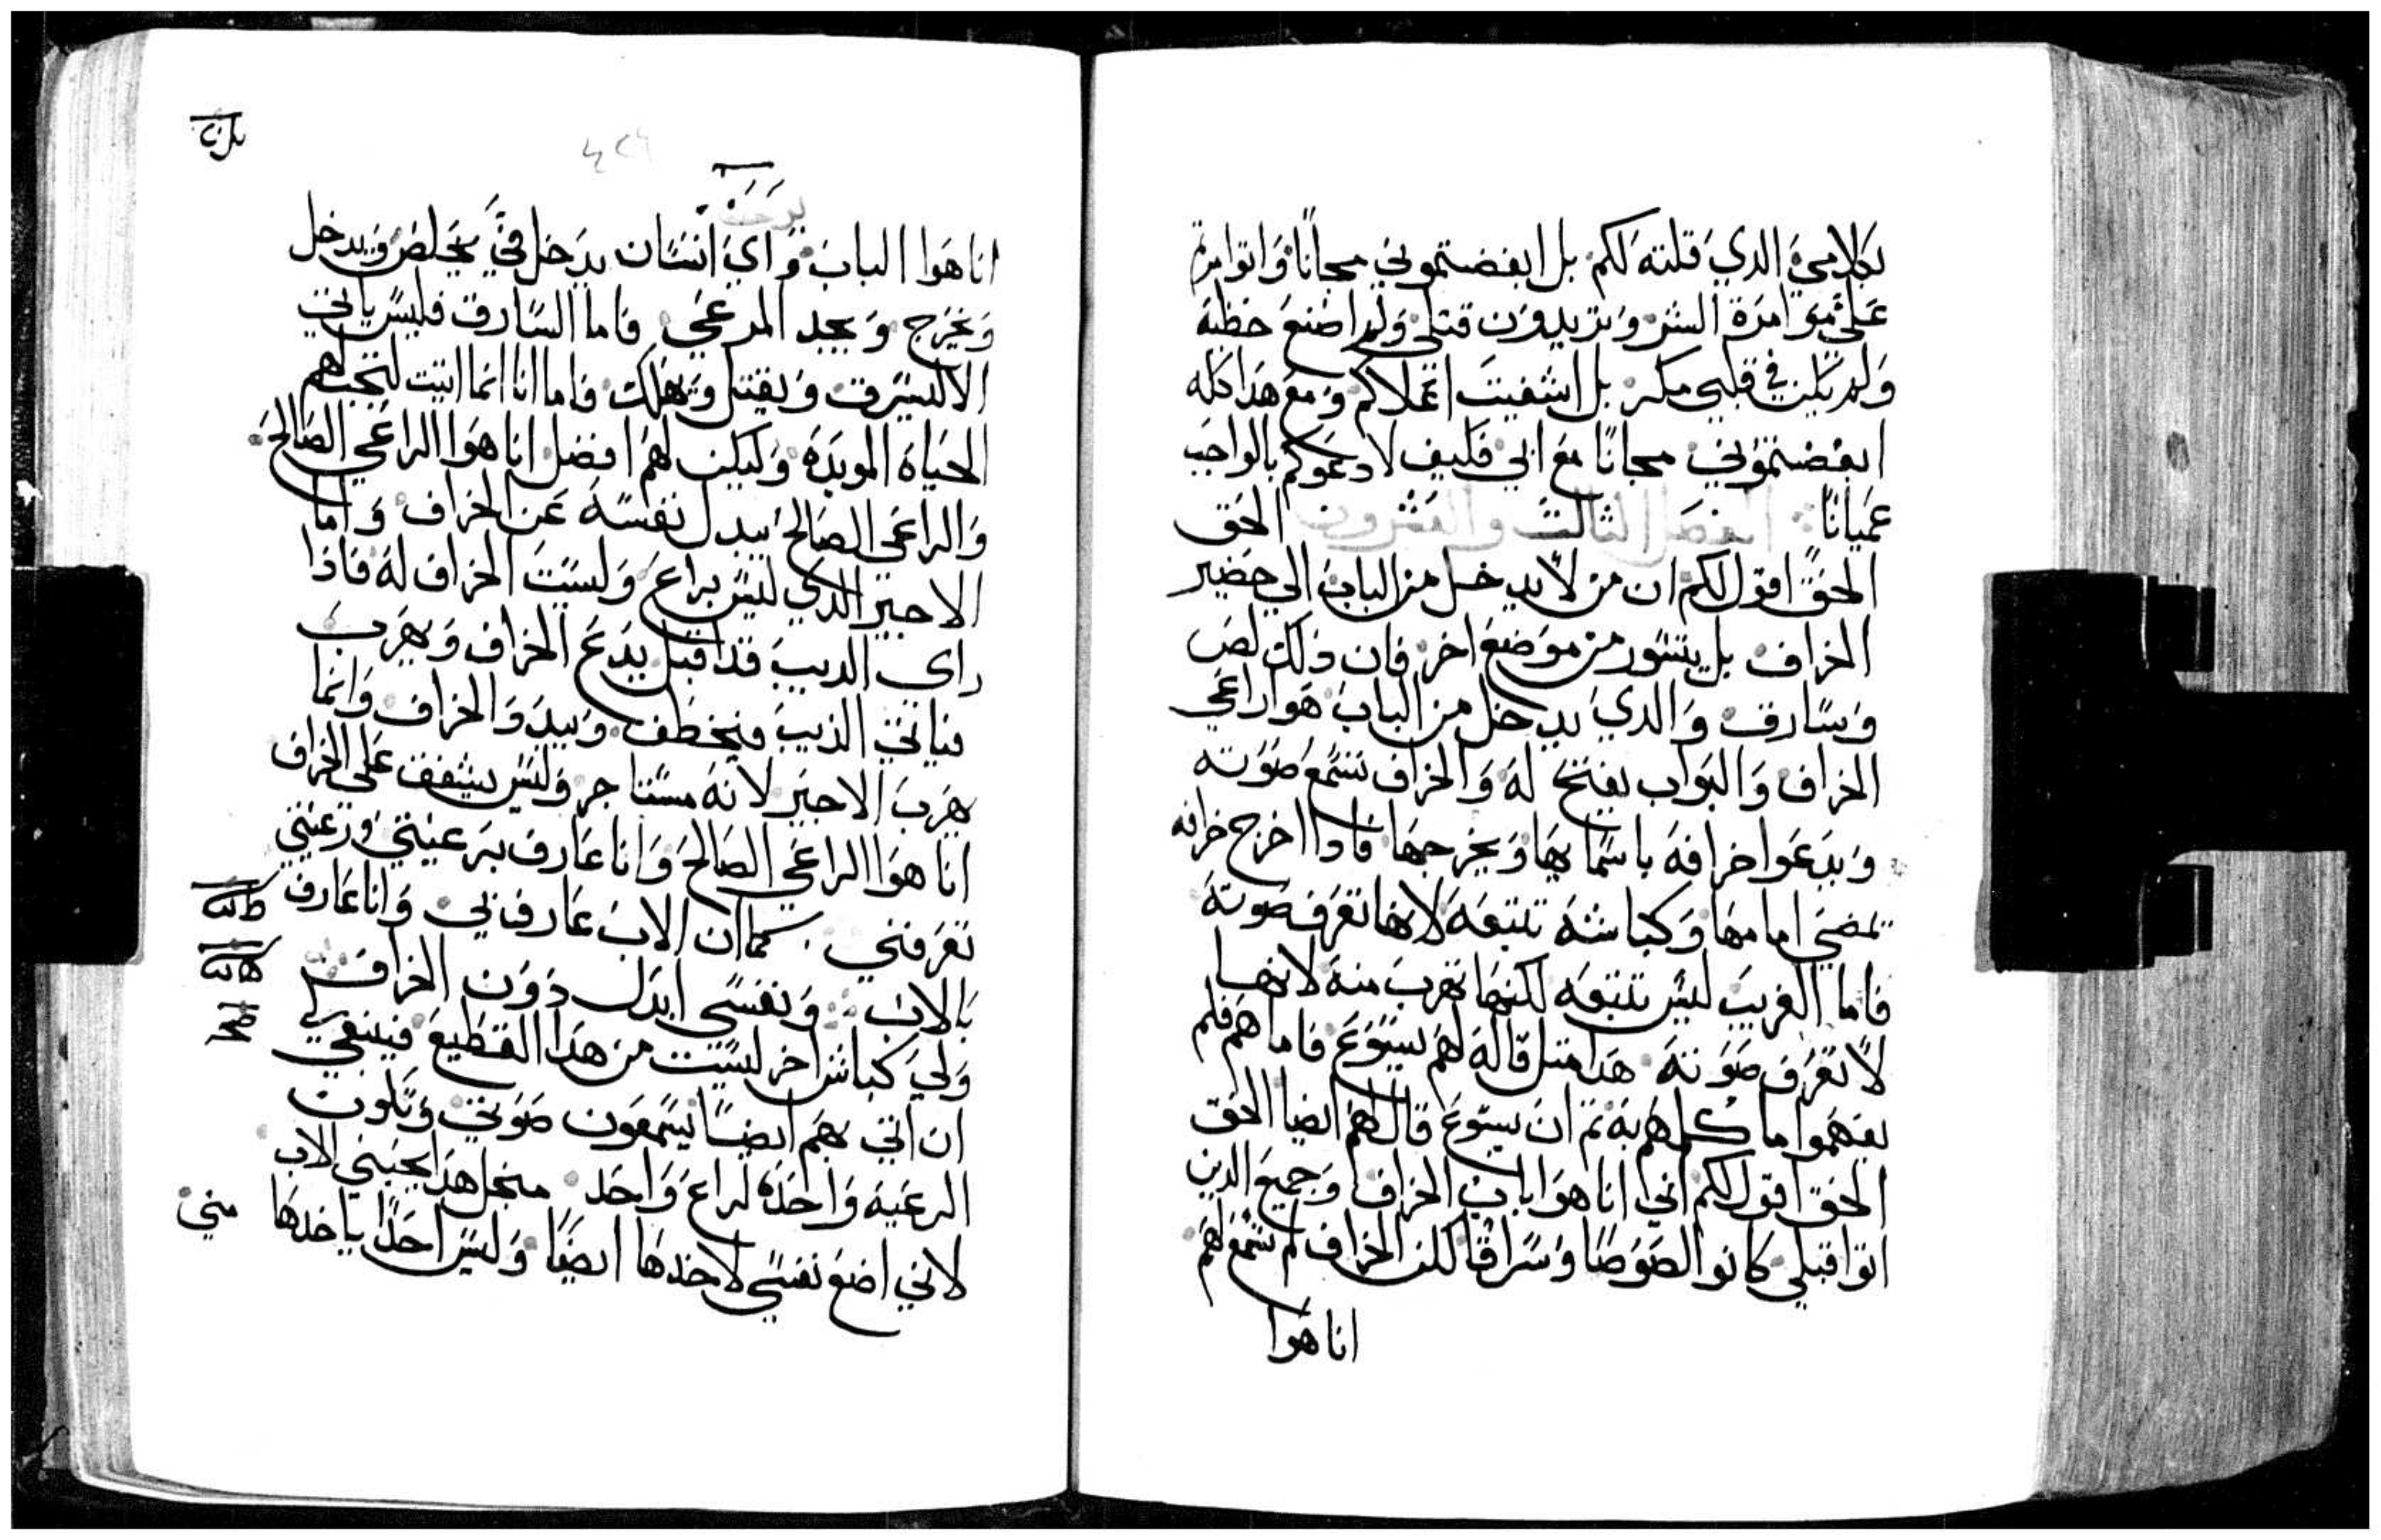 بكلامي الدي قلته لكم بل ابغضتموني مجانًا واتوامرتم
علي موامرة الشر وتريدون قتلي ولم اصنع خطيه
ولم يكن في قلبي مكر بل اشفيت اعملاكم ومع هدا كله
ابغضتموني مجانًا مع ابي فكيف لا دعوكم بالواجب
عميانًا الفصل الثالث والعشرون الحق
الحق اقول لكم ان من لا يدخل من الباب الي حضير
الخراف بل يتسور من موضع اخر فان ذلك لص
وسارق والدي يدخل من الباب هوا راعي
الخراف والبواب يفتح له والخراف تسمع صوته
ويدعوا خرافه باسمايها ويخرجها فاذا اخرج خرافه
تمضي امامها وكباشه تتبعه لانها تعرف صوته
فاما الغريب ليس تتبعه لكنها تهرب منه لانها
لا تعرف صوته هدا متل قاله لهم يسوع فاما هم فلم
يفهموا ما كلمهم به تم ان يسوع قال لهم ايضا الحق
الحق اقول لكم اني انا هوا باب الخراف وجميع الدين
اتوا قبلي كانوا لصوصًا وسراقًا لكن الخراف لم تسمع لهم
انا هوا
انا هوا الباب واي انسان يدخل في يخلص ويدخل
ويخرج ويجد المرعي فاما السارق فليس ياتي
الا ليسرق ويقتل ويهلك واما انا انما اتيت لتجب لهم
الحياه الموبده وليكن لهم افضل انا هوا الراعي الصالح
والراعي الصالح يبدل نفسه عن الخراف واما
الاجير الدي ليس براع وليست الخراف له فاذا
راي الديب قد اقبل يدع الخراف ويهرب
فياتي الذيب فيخطف ويبدد الخراف وانما
يهرب الاجير لانه مستاجر وليس يشفق علي الخراف
انا هوا الراعي الصالح وانا عارف برعيتي ورعيتي
تعرفني كما ان الاب عارف بي وانا عارف
بالاب ونفسي ابدل دون الخراف
ولي كباش اخر ليست من هدا القطيع فينبغي لي
ان اتي بهم ايضًا يسمعون صوتي وتكون
الرعيه واحده لراع واحد منجل هدا يحبني الاب
لاني اضع نفسي لاخدها ايضًا وليس احدًا ياخدها مني